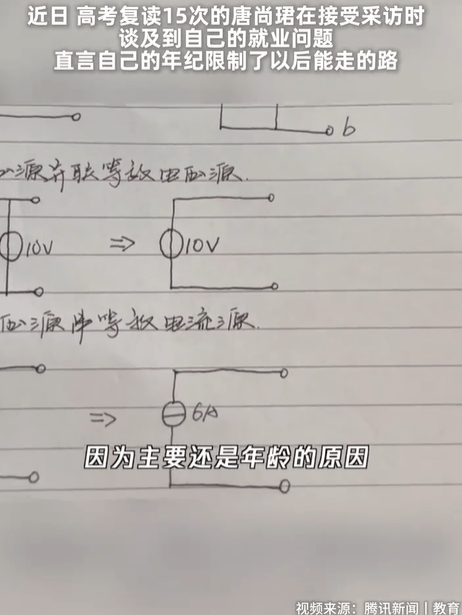 近日 高考复读15次的唐尚珺在接受采访时
谈及到自己的就业问题
直言自己的年纪限制了以后能走的路
b
源并联等效电压源.
10V ⇒ 10V
压源串等效电流源.
⇒ 6A
因为主要还是年龄的原因
视频来源：腾讯新闻｜教育